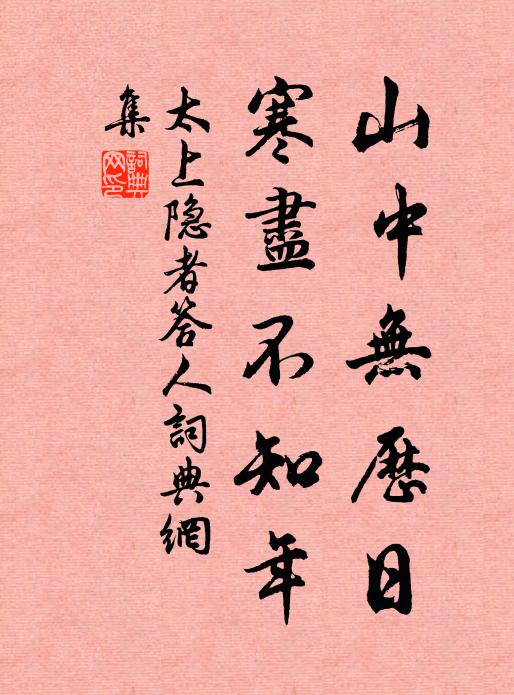 山中無歷日
寒盡不知年
太上隐者答人詞典網
集
詞典
网印